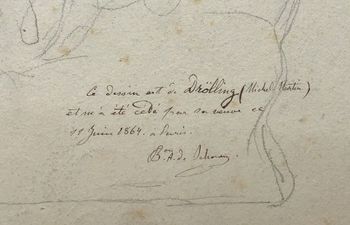 Ce dessin est de Drölling (Michel Martin)
et m'a été cédé par sa veuve ce
11 Juin 1864 à Paris.
Bon A. de